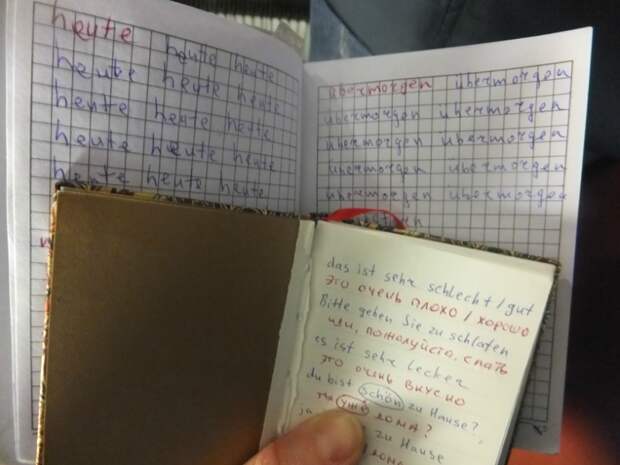 heute heute heute
heute heute heute
heute heute heute
heute heute heute
heute heute heute
übermorgen übermorgen
übermorgen übermorgen
übermorgen übermorgen
übermorgen übermorgen
übermorgen übermorgen
das ist sehr schlecht/gut
это очень плохо/хорошо
Bitte gehen Sie zu schlafen
иди, пожалуйста, спать
es ist sehr lecker
это очень вкусно
du bist schön zu Hause?
ты уже дома?
ja zu Hause
дома